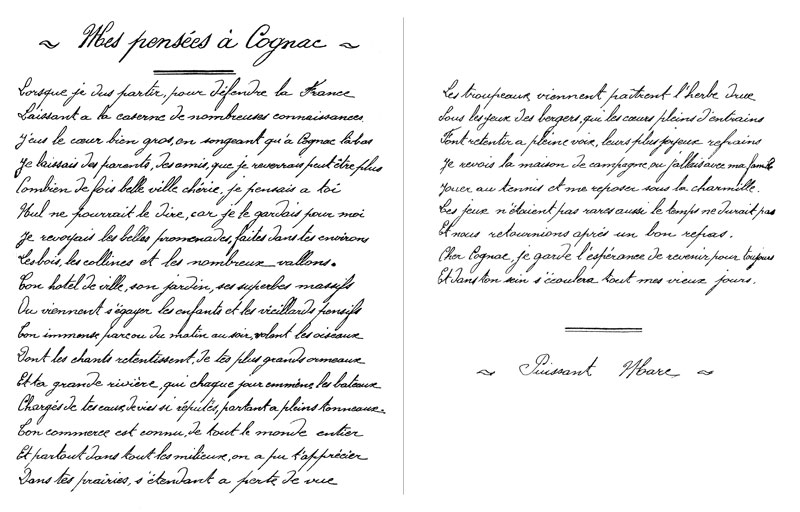 ~ Mes pensées à Cognac ~
Lorsque je dus partir, pour défendre la France
Laissant a la caserne de nombreuses connaissances
J'eus le cœur bien gros, en songeant qu'à Cognac labas
Je laissais des parents, des amis, que je reverrais peut être plus
Combien de fois belle ville chérie, je pensais a toi
Nul ne pourrait le dire, car je le gardais pour moi
Je revoyais les belles promenades, faites dans tes environs
Les bois, les collines et les nombreux vallons.
Ton hotel de ville, son jardin, ses superbes massifs
Ou viennent s'égayer les enfants et les vieillards pensifs
Ton immense parc ou du matin au soir, volent les oiseaux
Dont les chants retentissent, de tes plus grands ormeaux
Et ta grande rivière, qui chaque jour emmène les bateaux
Chargés de tes eaux de vies si réputés, partant a pleins tonneaux.
Ton commerce est connu, de tout le monde entier
Et partout dans tout les milieux, on a pu t'apprécier
Dans tes prairies, s'étendant a perte de vue
Les troupeaux viennent paîtrent l'herbe drue
Sous les yeux des bergers, qui les cœurs pleins d'entrains
Font retentir a pleine voix, leurs plus joyeux refrains
Je revois la maison de campagne, ou j'allais avec ma famille
Jouer au tennis et me reposer sous la charmille.
Ces jeux n'étaient pas rares aussi le temps ne durait pas
Et nous retournions après un bon repas.
Cher Cognac, je garde l'espérance de revenir pour toujours
Et dans ton sein s'écoulera tout mes vieux jours.
~ Puissant Marc ~